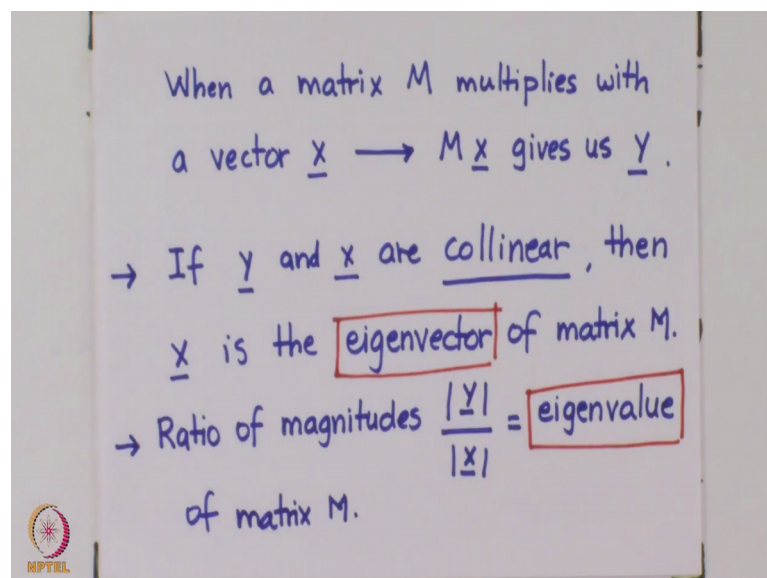 When a matrix M multiplies with
a vector X → M X gives us Y.
→ If Y and X are collinear, then
X is the eigenvector of matrix M.
→ Ratio of magnitudes |Y| / |X| = eigenvalue
of matrix M.
NPTEL